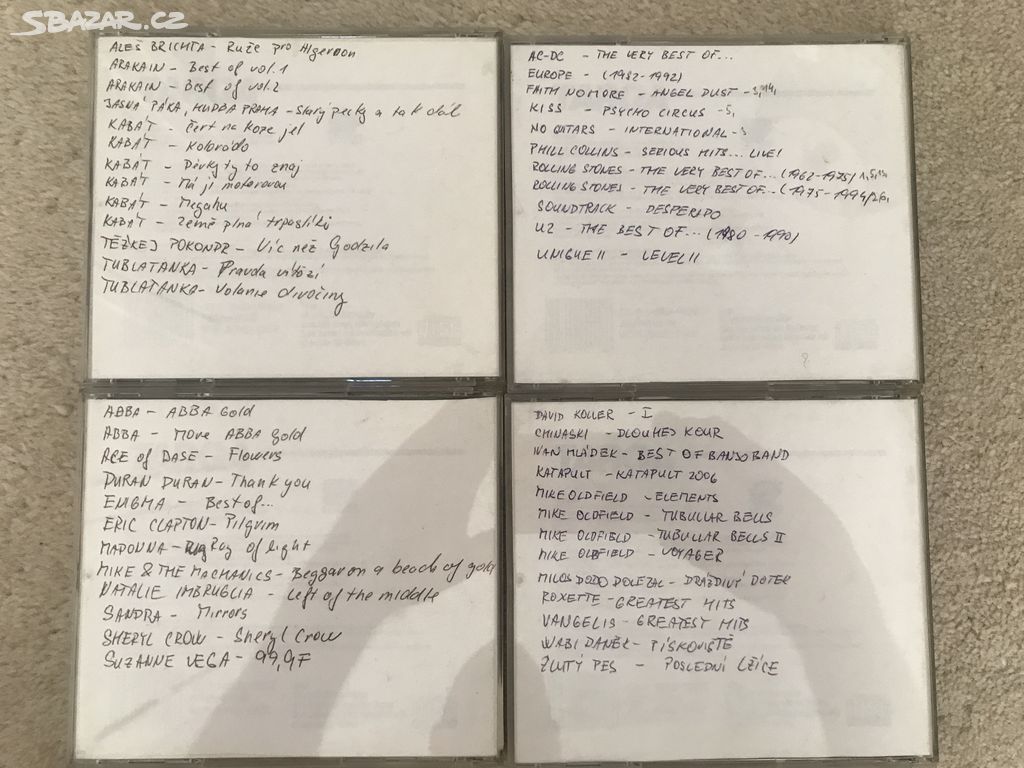 SBAZAR.CZ
ALEŠ BRICHTA - Ruže pro Algernon
ARAKAIN - Best of vol.1
ARAKAIN - Best of vol.2
JASNÁ PÁKA, HUDBA PRAHA - Starý pecky a tak dál
KABÁT - Čert na koze jel
KABÁT - Kolorádo
KABÁT - Děvky ty to znaj
KABÁT - Má ji motorovou
KABÁT - Megahu
KABÁT - Země plná trpaslíků
TĚŽKEJ POKONDR - Víc než Godzila
TUBLATANKA - Pravda víťazí
TUBLATANKA - Volanie divočiny
AC-DC - THE VERY BEST OF...
EUROPE - (1982-1992)
FAITH NO MORE - ANGEL DUST -3,14,
KISS - PSYCHO CIRCUS -5,
NO GUTARS - INTERNATIONAL -3
PHILL COLLINS - SERIOUS HITS... LIVE!
ROLLING STONES - THE VERY BEST OF... (1962-1975)
ROLLING STONES - THE VERY BEST OF... (1975-1994)
SOUNDTRACK - DESPERADO
U2 - THE BEST OF... (1980-1990)
UNIGUE II - LEVEL II
ABBA - ABBA Gold
ABBA - More ABBA gold
ACE of BASE - Flowers
DURAN DURAN - Thank you
ENIGMA - Best of...
ERIC CLAPTON - Pilgrim
MADONNA - Ray of light
MIKE & THE MACHANICS - Beggar on a beach of gold
NATALIE IMBRUGLIA - Left of the middle
SANDRA - Mirrors
SHERYL CROW - Sheryl Crow
SUZANNE VEGA - 99,9F
DAVID KOLLER - I
CHINASKI - DLOUHEJ KOUR
IVAN MLÁDEK - BEST OF BANJO BAND
KATAPULT - KATAPULT 2006
MIKE OLDFIELD - ELEMENTS
MIKE OLDFIELD - TUBULLAR BELLS
MIKE OLDFIELD - TUBULLAR BELLS II
MIKE OLDFIELD - VOYAGER
MILOŠ DODO DOLEŽAL - DRÁŽDIVÝ DOTEK
ROXETTE - GREATEST HITS
VANGELIS - GREATEST HITS
WABI DANĚK - PÍSKOVIŠTĚ
ŽLUTÝ PES - POSLEDNÍ LŽÍCE